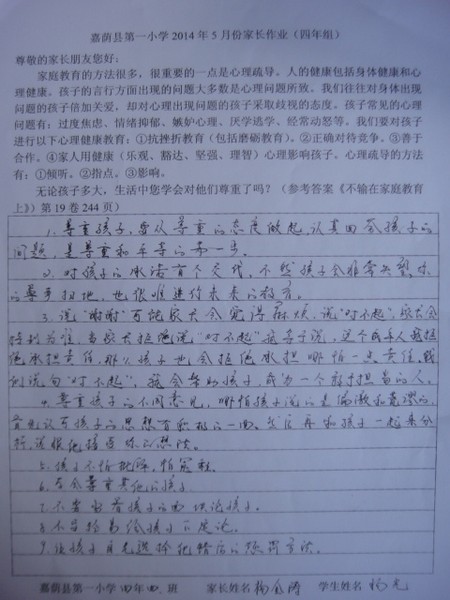 嘉荫县第一小学2014年5月份家长作业（四年组）
尊敬的家长朋友您好：
家庭教育的方法很多，很重要的一点是心理疏导。人的健康包括身体健康和心
理健康。孩子的言行方面出现的问题大多数是心理问题所致。我们往往对身体出现
问题的孩子倍加关爱，却对心理出现问题的孩子采取歧视的态度。孩子常见的心理
问题有：过度焦虑、情绪抑郁、嫉妒心理、厌学逃学、经常动怒等。我们要对孩子
进行以下心理健康教育：①抗挫折教育（包括磨砺教育）。②正确对待竞争。③善于
合作。④家人用健康（乐观、豁达、坚强、理智）心理影响孩子。心理疏导的方法
有：①倾听。②指点。③影响。
无论孩子多大，生活中您学会对他们尊重了吗？（参考答案《不输在家庭教育
上》）第19卷244页）
1. 尊重孩子，要从尊重的态度做起，认真回答孩子的
问题，是尊重和平等的第一步。
2. 对孩子的承诺有个交代，不然孩子会非常失望，你
的尊严扫地，也很难进行未来的教育。
3. 说"谢谢"可能家长会觉得麻烦，说"对不起"，家长会
特别为难，当家长拒绝说"对不起"
承担责任，那么孩子也会拒绝承担哪怕一点责任，
说句"对不起"，孩子，成为一个敢于担当的人。
4. 尊重孩子的不同意见，哪怕孩子说的是偏激和荒谬的，
首先认可孩子的思想有积极的一面，然后再和孩子一起来分
析，说服他接受你的想法。
5. 孩子不怕批评，怕冤枉。
6. 学会尊重其他的孩子
7. 不要当着孩子的面议论孩子。
8. 不要轻易给孩子下定论。
9. 让孩子自己选择犯错后的惩罚方法。
嘉荫县第一小学四年四班 家长姓名 杨金涛 学生姓名 杨光